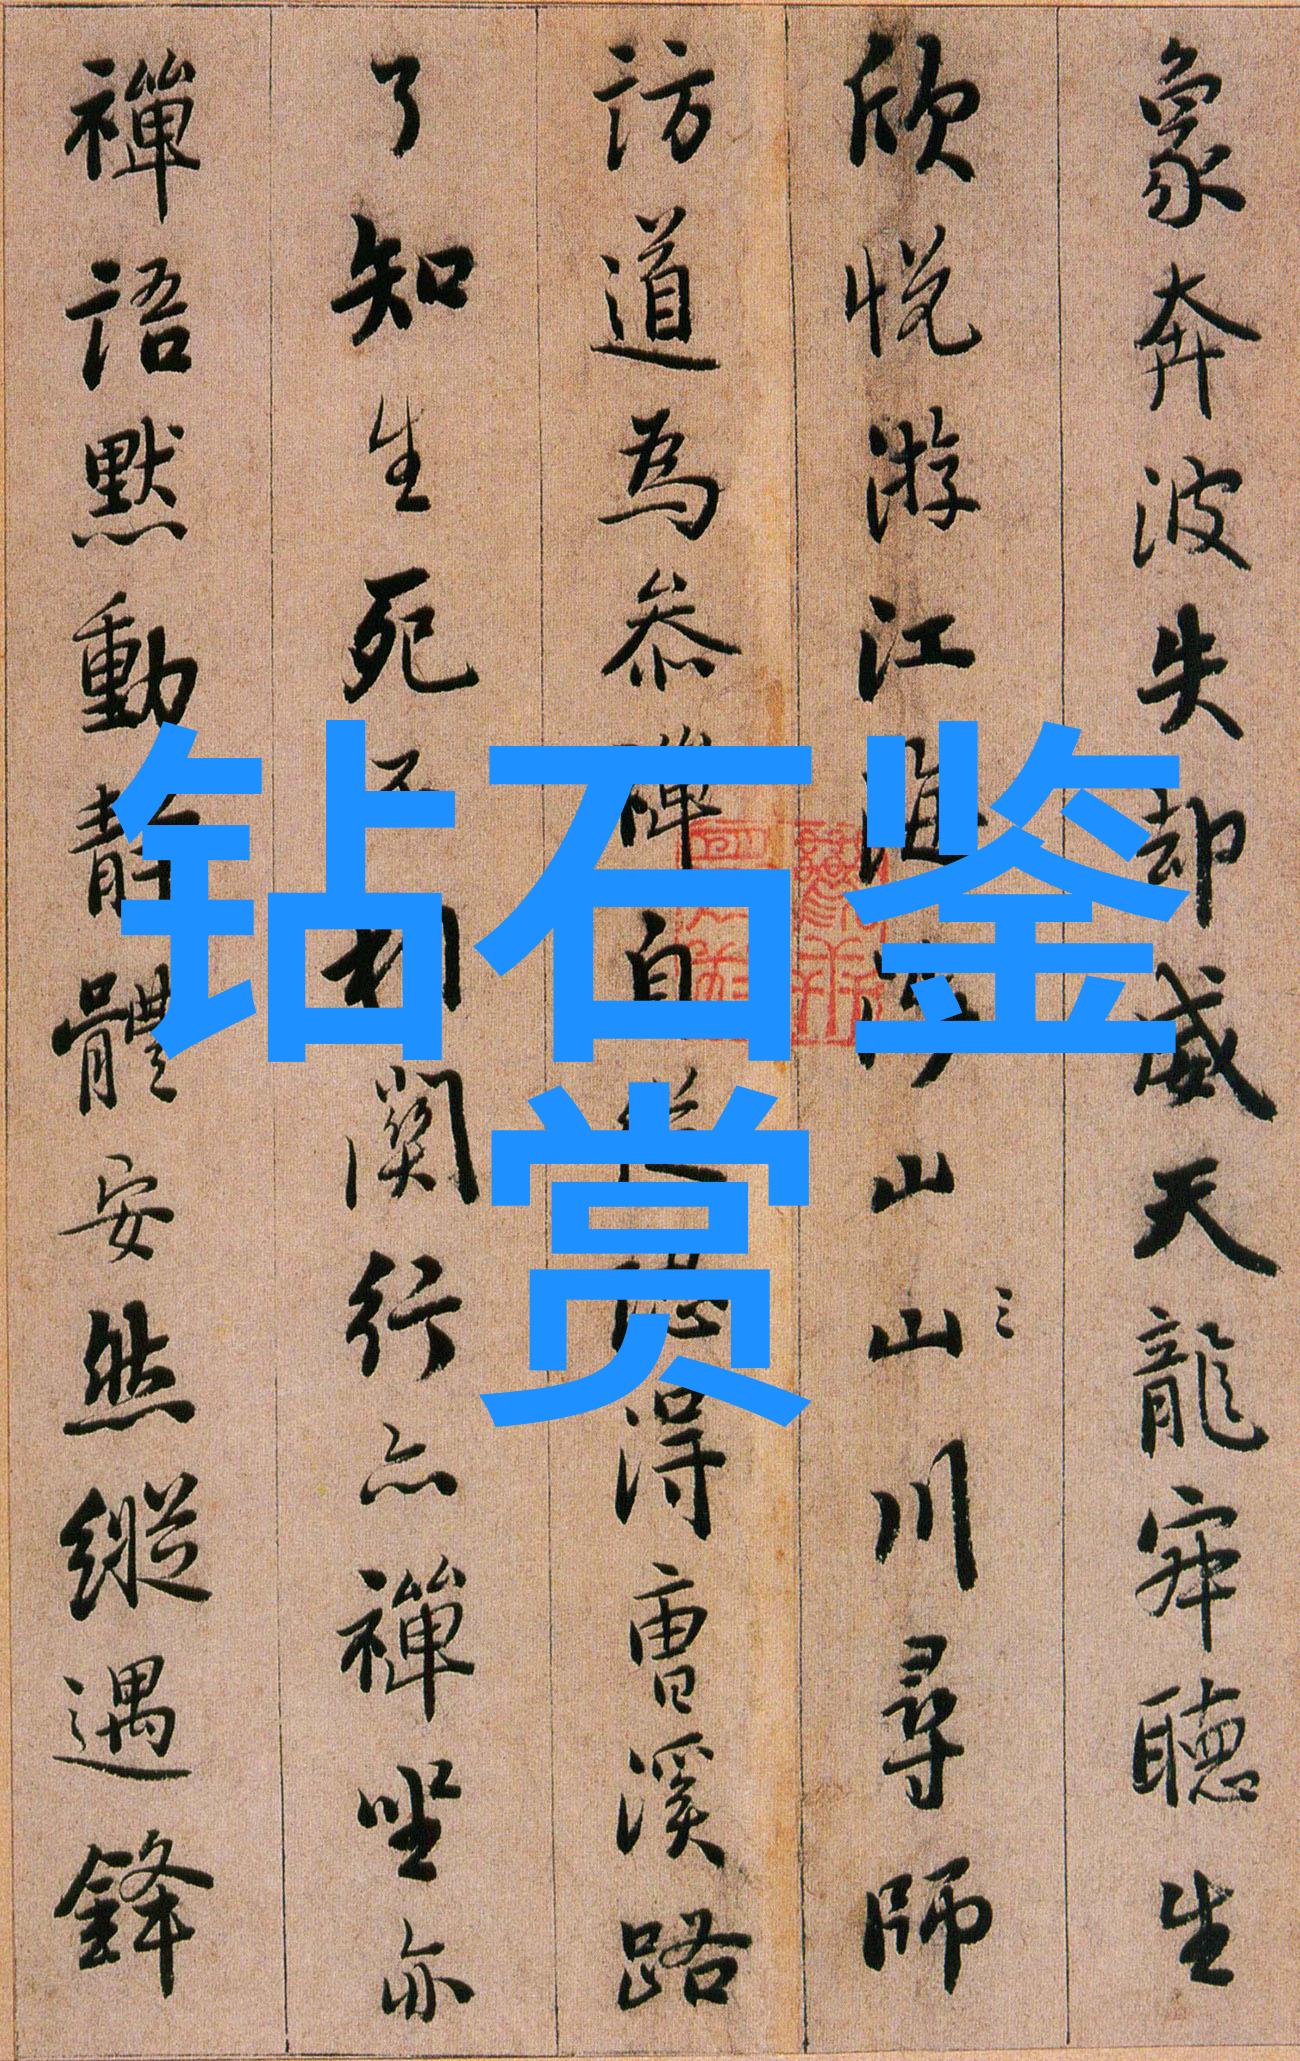 钻石鉴
赏
象奔波失却威天龍寂聽生
欣悦游江海山山川尋師
訪道為叅禪自得曹溪路
了知生死不相関行亦禪坐亦
禪語默動靜體安然縱遇鋒